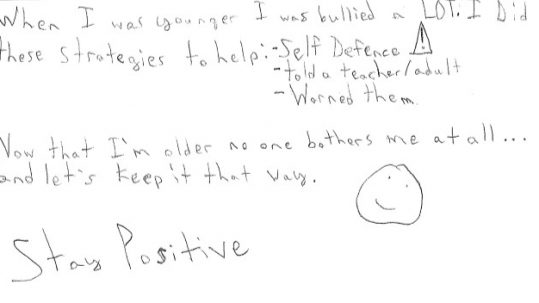 When I was younger I was bullied a LOT. I Did
these strategies to help:-Self Defence
-told a teacher/adult
-Worned them.
Now that I'm older no one bothers me at all...
and let's keep it that way.
Stay Positive